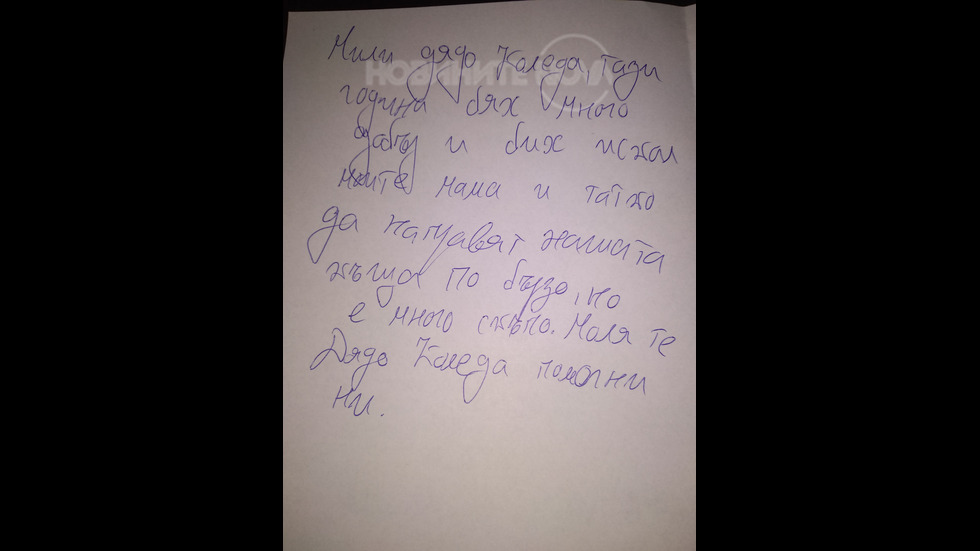 Мили дядо Коледа, тази
година бях много
добър и бих искал
моите мама и татко
да направят нашата
къща по бързо, но
е много скъпо. Моля те
Дядо Коледа помогни
ни.
НОВИНИТЕ NOVA